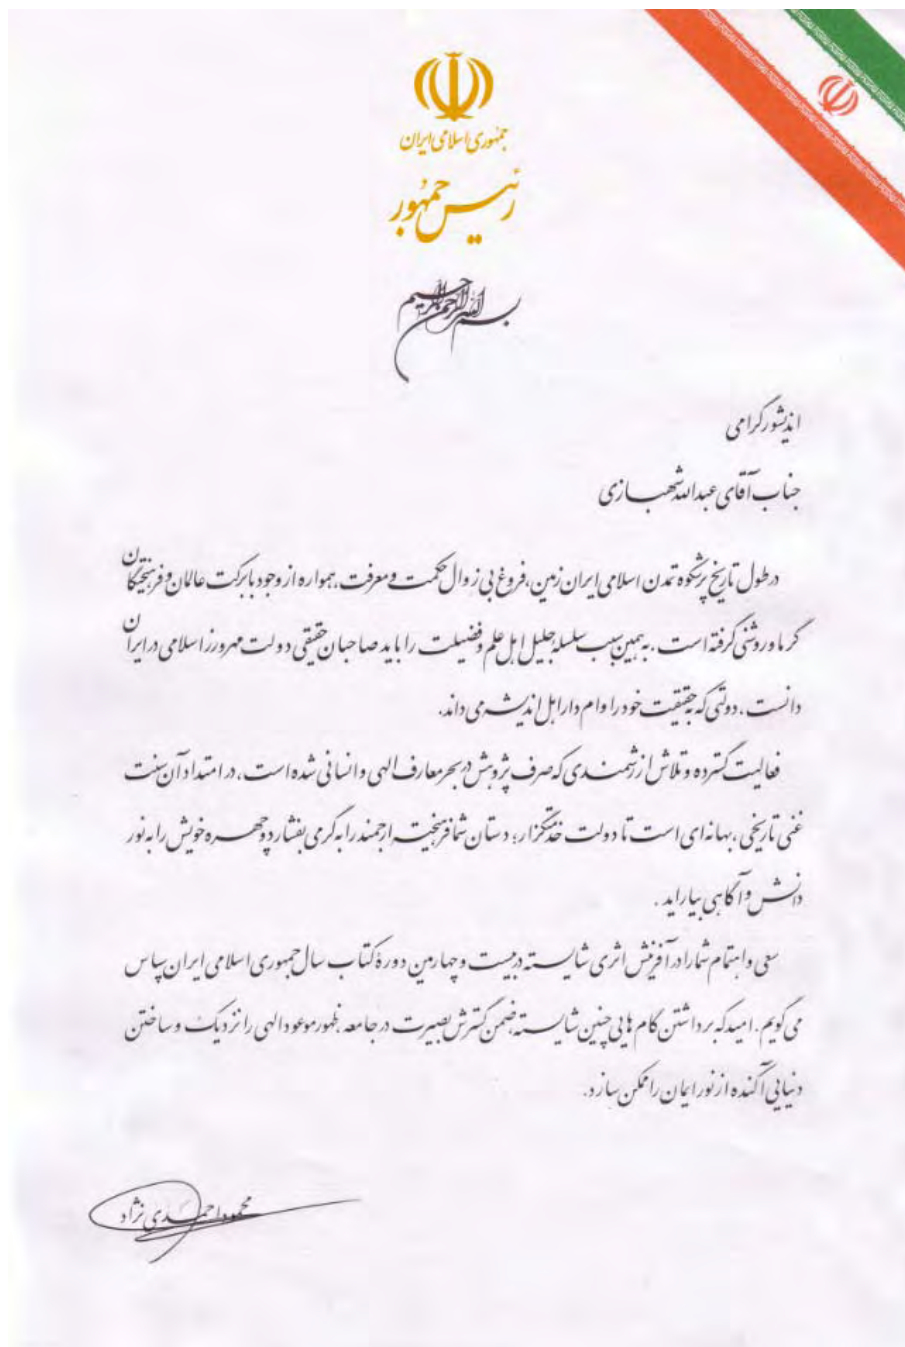 جمهوری اسلامی ایران
رئیس جمهور
بسم الله الرحمن الرحیم
اندیشور گرامی
جناب آقای عبدالله شهبازی
در طول تاریخ پرشکوه تمدن اسلامی ایران زمین، فروغ بی زوال حکمت و معرفت، همواره از وجود بابرکت عالمان و فرهیختگان
گرما و روشنی گرفته است. به همین سبب سلسله جلیل اهل علم و فضیلت را باید صاحبان حقیقی دولت مهرورز اسلامی در ایران
دانست، دولتی که به حقیقت خود را وام دار اهل اندیشه می داند.
فعالیت گسترده و تلاش ارزشمندی که صرف پژوهش در بحر معارف الهی و انسانی شده است، در امتداد آن سنت
غنی تاریخی، بهانه ای است تا دولت خدمتگزار، دستان شما فرهیخته ارجمند را به گرمی بفشارد و چهره خویش را به نور
دانش و آگاهی بیاراید.
سعی و اهتمام شما را در آفرینش اثری شایسته در بیست و چهارمین دورهٔ کتاب سال جمهوری اسلامی ایران سپاس
می گویم. امید که برداشتن گام هایی چنین شایسته ضمن گسترش بصیرت در جامعه، ظهور موعود الهی را نزدیک و ساختن
دنیایی آکنده از نور ایمان را ممکن سازد.
محمود احمدی نژاد